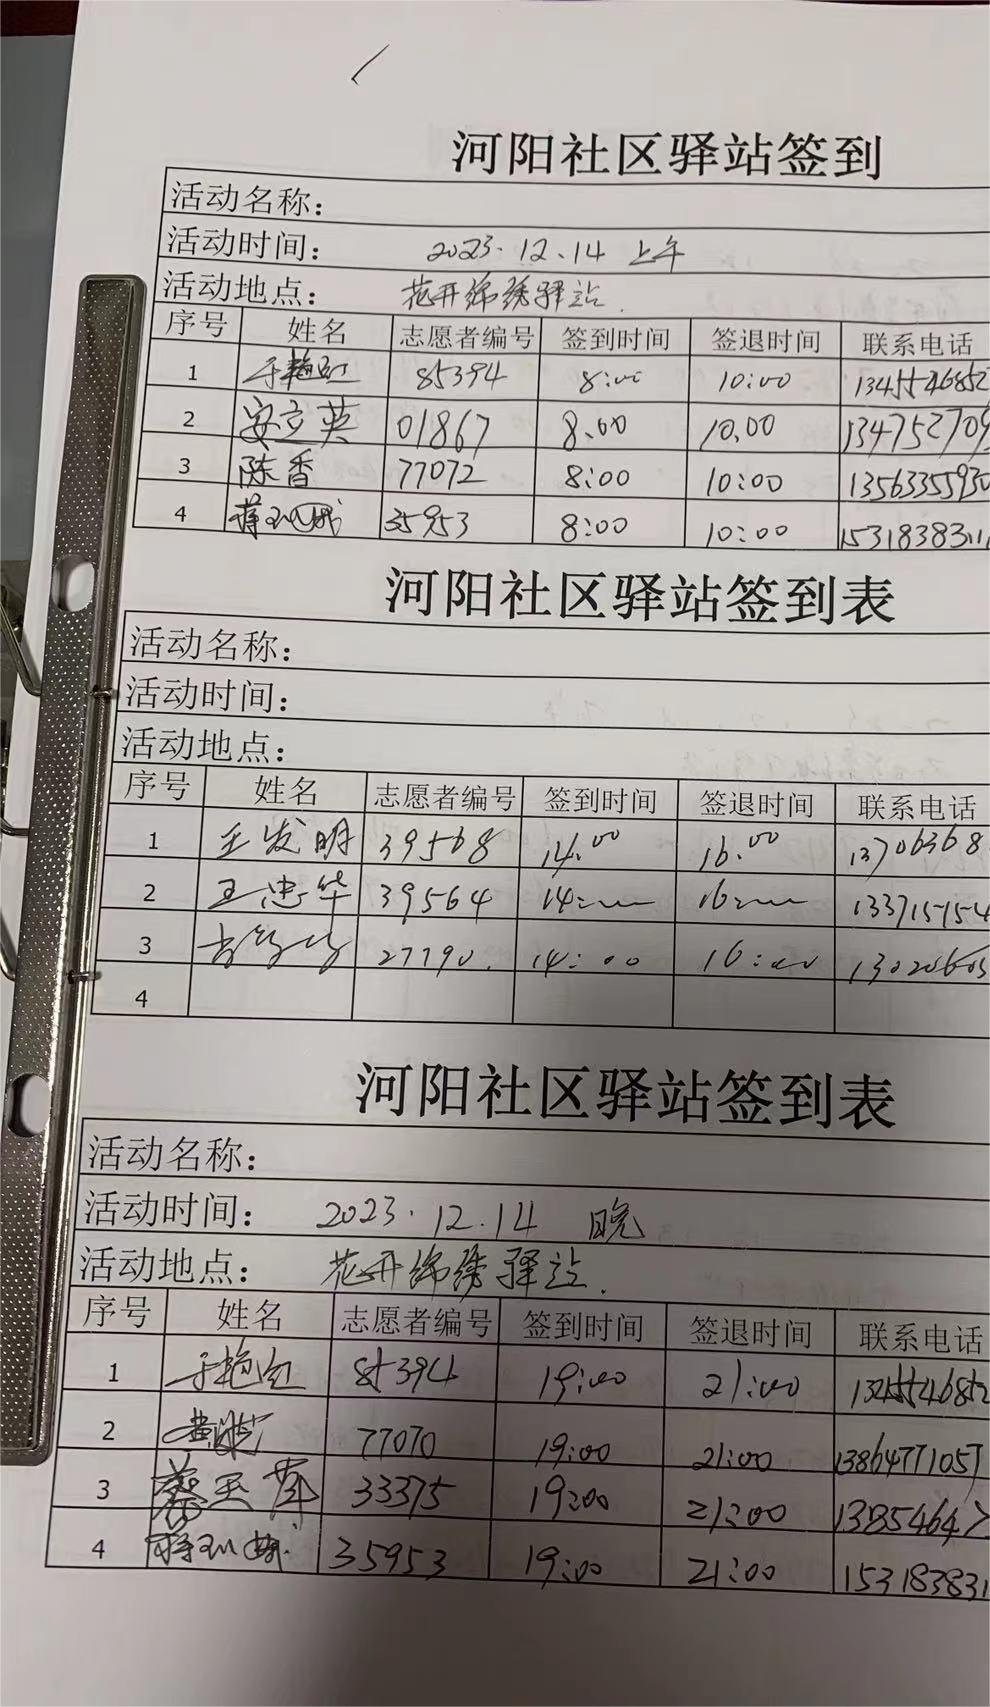 河阳社区驿站签到
活动名称：
活动时间： 2023.12.14 上午
活动地点： 花开锦绣驿站.
序号 姓名 志愿者编号 签到时间 签退时间 联系电话
1 于艳红 85394 8:00 10:00 13455546852
2 安立英 01867 8.00 10.00 1347527709
3 陈香 77072 8:00 10:00 13563355930
4 35953 8:00 10:00 153183831
河阳社区驿站签到表
活动名称：
活动时间：
活动地点：
序号 姓名 志愿者编号 签到时间 签退时间 联系电话
1 王发明 39568 14.00 16.00 13706368
2 王忠华 39564 14: 16: 13371515
3 27790. 14:00 16:00
4
河阳社区驿站签到表
活动名称：
活动时间： 2023.12.14 晚
活动地点： 花开锦绣驿站.
序号 姓名 志愿者编号 签到时间 签退时间 联系电话
1 于艳红 85394 19:00 21:00 13455546852
2 77070 19:00 21:00 13864771057
3 33375 19:00 21:00
4 35953 19:00 21:00 153183831